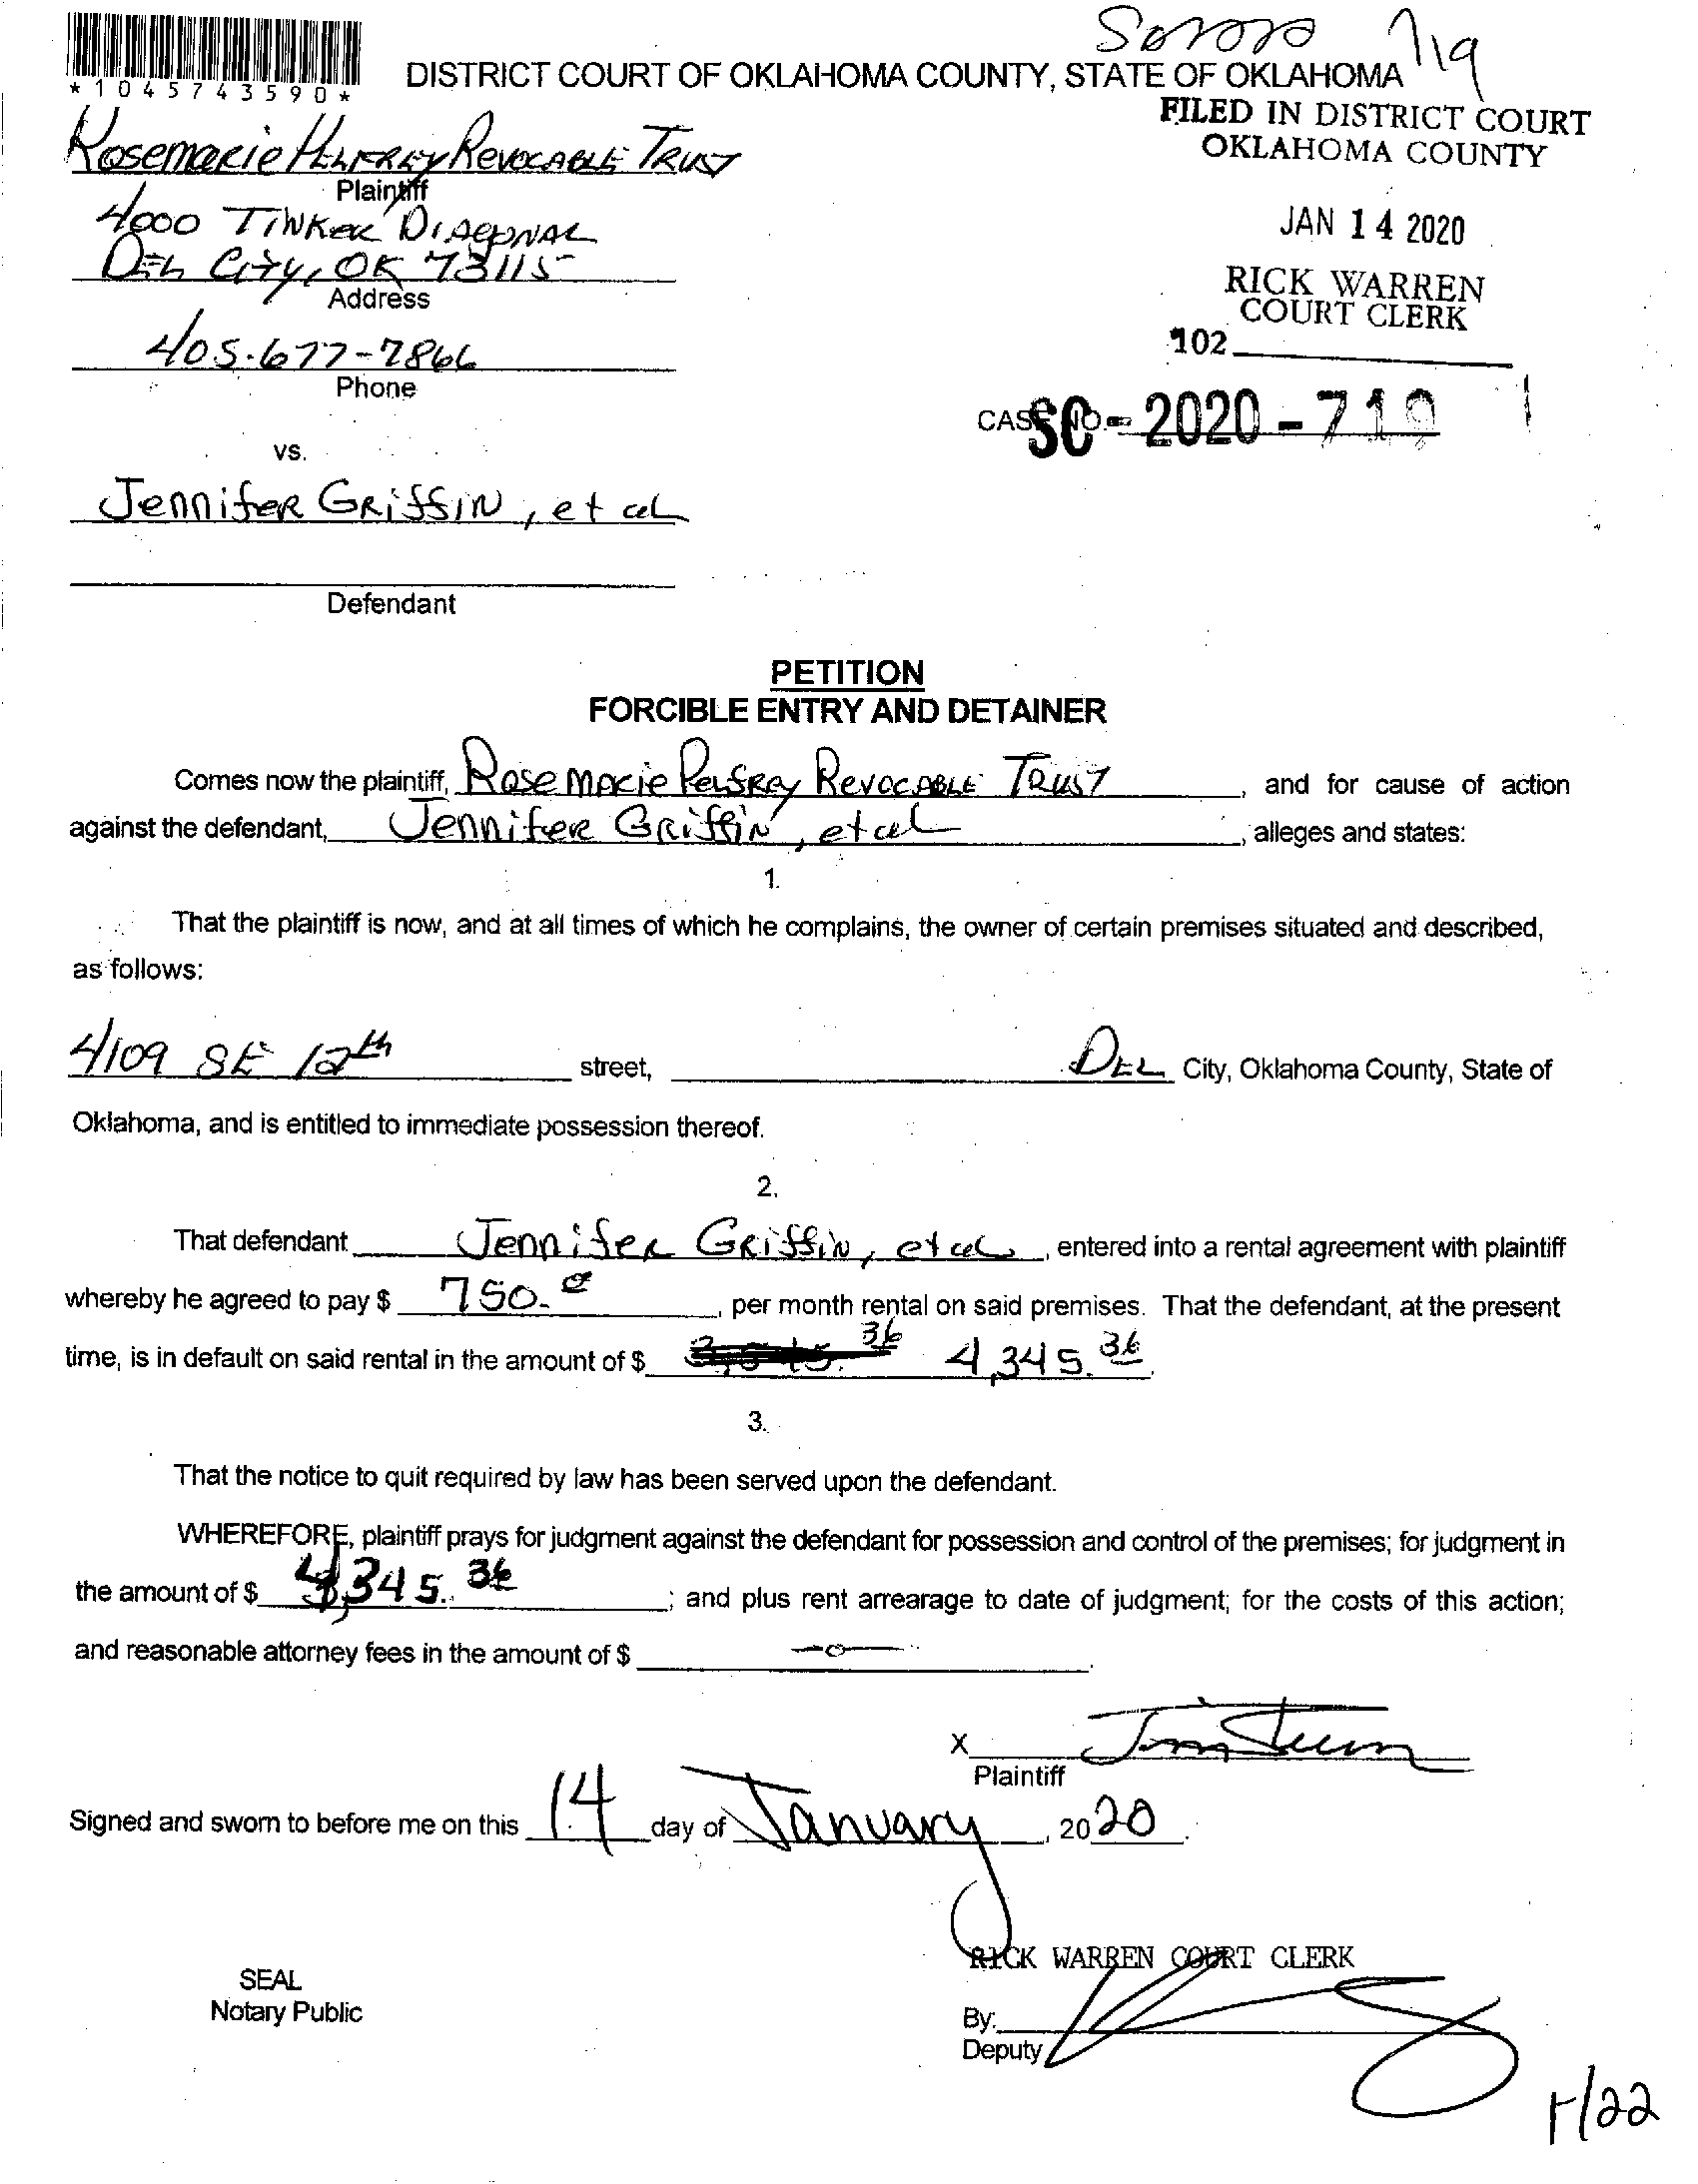 719
*1045743590*
DISTRICT COURT OF OKLAHOMA COUNTY, STATE OF OKLAHOMA
FILED IN DISTRICT COURT
OKLAHOMA COUNTY
Rosemarie Revocable Trust
Plaintiff
4000 Tinker Diagonal
Del City, OK 73115
Address
JAN 14 2020
RICK WARREN
COURT CLERK
102
405-677-7866
Phone
CASE NO. SC-2020-719
vs.
Jennifer Griffin, et al
Defendant
PETITION
FORCIBLE ENTRY AND DETAINER
Comes now the plaintiff, Rosemarie Pelfrey Revocable Trust, and for cause of action
against the defendant, Jennifer Griffin, et al, alleges and states:
1.
That the plaintiff is now, and at all times of which he complains, the owner of certain premises situated and described,
as follows:
4109 SE 12th street, Del City, Oklahoma County, State of
Oklahoma, and is entitled to immediate possession thereof.
2.
That defendant Jennifer Griffin, et al, entered into a rental agreement with plaintiff
whereby he agreed to pay $ 750.0, per month rental on said premises. That the defendant, at the present
time, is in default on said rental in the amount of $ 36 4,345.36.
3.
That the notice to quit required by law has been served upon the defendant.
WHEREFORE, plaintiff prays for judgment against the defendant for possession and control of the premises; for judgment in
the amount of $ 4,345.36; and plus rent arrearage to date of judgment; for the costs of this action;
and reasonable attorney fees in the amount of $ -0-.
X
Plaintiff
Signed and sworn to before me on this 14 day of January, 2020.
RICK WARREN COURT CLERK
SEAL
Notary Public
By:
Deputy
1/22